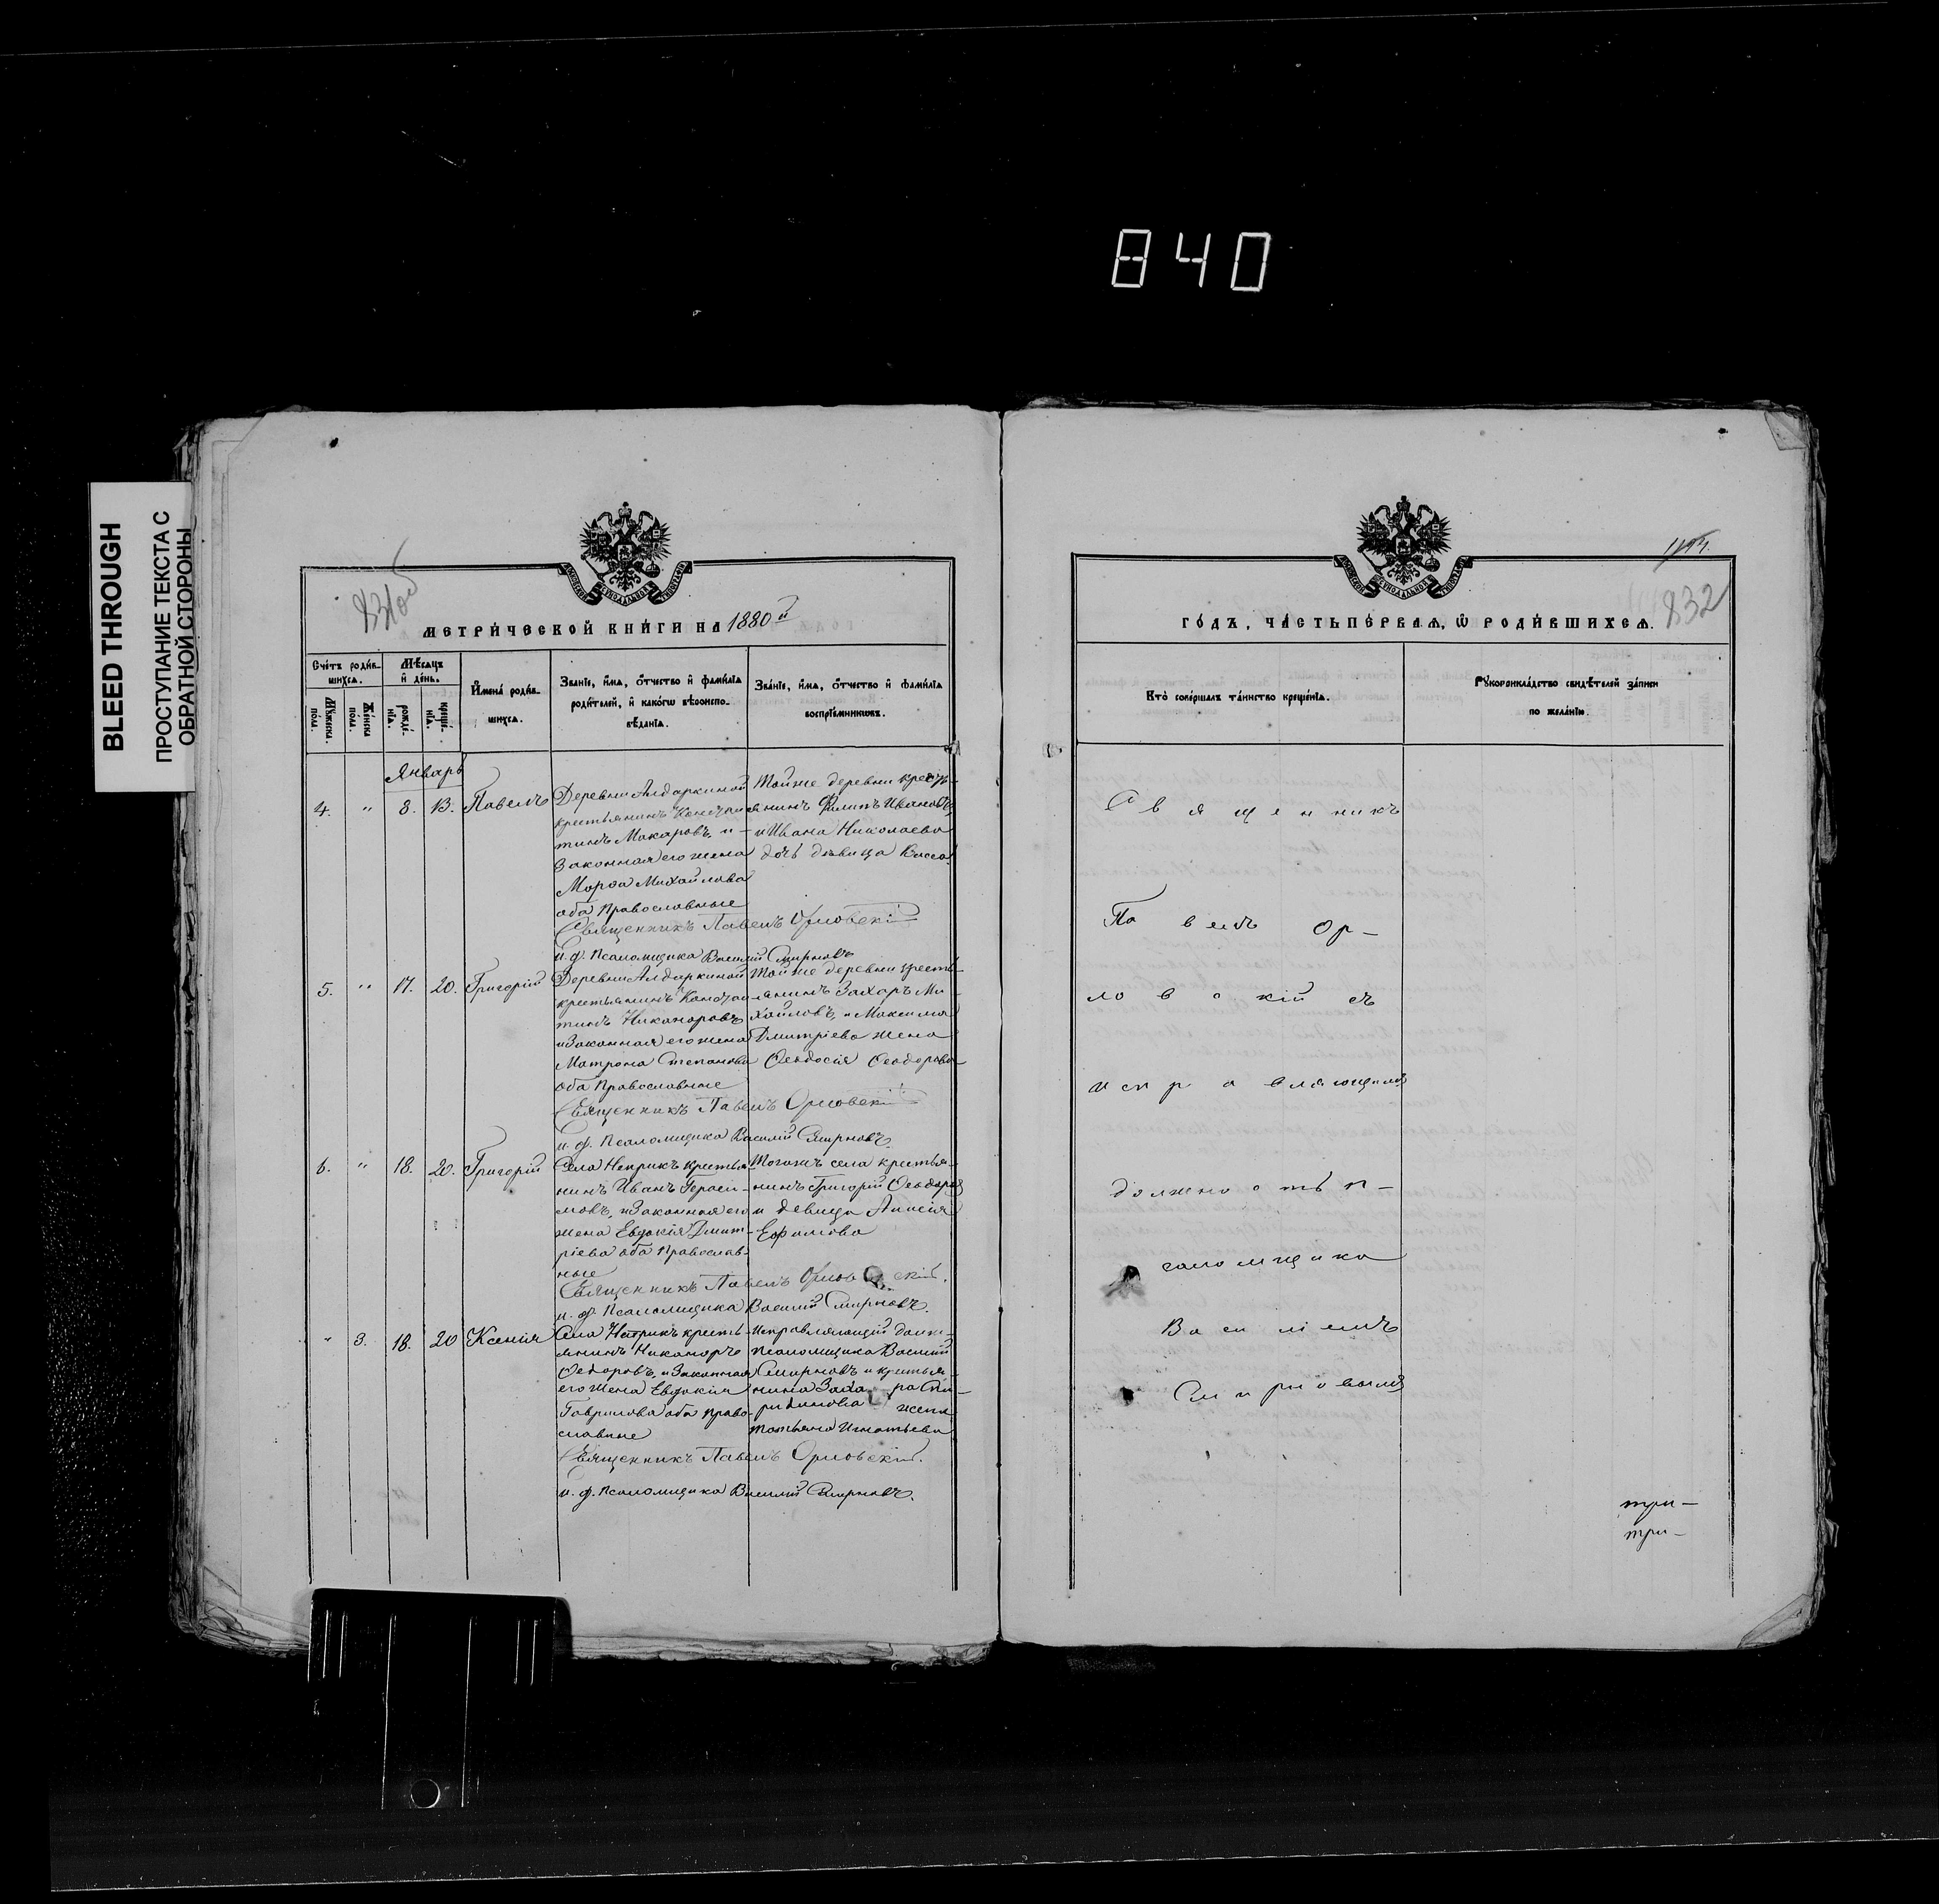 840
BLEED THROUGH
ПРОСТУПАНИЕ ТЕКСТА С
ОБРАТНОЙ СТОРОНЫ
831об
МЕТРИЧЕСКОЙ КНИГИ НА 1880й
Счетъ родив-
шихся.
Мѣсяцъ
и день.
Имена родив-
шихся.
Званіе, имя, отчество и фамилія
родителей, и какогѡ вѣроиспо-
вѣданія.
Званіе, имя, отчество и фамилія
воспріемниковъ.
Мужеска
пола.
Женска
пола.
рожде-
нія.
креще-
нія.
Январь
4. " 8. 13. Павелъ
Деревни Алдаркиной
крестьянинъ Констан-
тинъ Макаровъ, и
законная его жена
Марѳа Михайлова
оба Православные
Тойже деревни кресть-
янинъ Филипъ Ивановъ,
и Ивана Николаева
дочь дѣвица Васса
Священникъ Павелъ Орловскій
и. д. Псаломщика Василій Смирновъ
5. " 17. 20. Григорій
Деревни Алдаркиной
крестьянинъ Констан-
тинъ Никаноровъ
и Законная его жена
Матрона Степанова
оба Православные
Тойже деревни кресть-
янинъ Захаръ Ми-
хайловъ, и Максима
Дмитріева жена
Ѳеодосія Ѳеодорова
Священникъ Павелъ Орловскій
и. д. Псаломщика Василій Смирновъ.
6. " 18. 20. Григорій
Села Неприкъ крестья-
нинъ Иванъ Гераси-
мовъ, и Законная его
жена Евдокія Дмит-
ріева оба Православ-
ные
Тогожъ села крестья-
нинъ Григорій Ѳеодоровъ
и девица Анисія
Ефимова
Священникъ Павелъ Орловскій.
и. д. Псаломщика Василій Смирновъ.
" 3. 18. 20 Ксенія
Села Неприкъ кресть-
янинъ Никаноръ
Ѳедоровъ, и Законная
его жена Евдокія
Гаврилова оба Право-
славные
Исправляющій долж-
Псаломщика Василій
Смирновъ и крестья-
нина Захара Спи-
ридонова жена
Татьяна Игнатьева
Священникъ Павелъ Орловскій.
и. д. Псаломщика Василій Смирновъ.
832
ГОДЪ, ЧАСТЬ ПЕРВАЯ, Ѡ РОДИВШИХСЯ.
Кто совершалъ таинство крещенія.
Рукоприкладство свидѣтелей записи
по желанію.
Священникъ
Павелъ Ор-
ловскій съ
исправляющимъ
должность п-
саломщика
Василіемъ
Смирновымъ
три-
три-